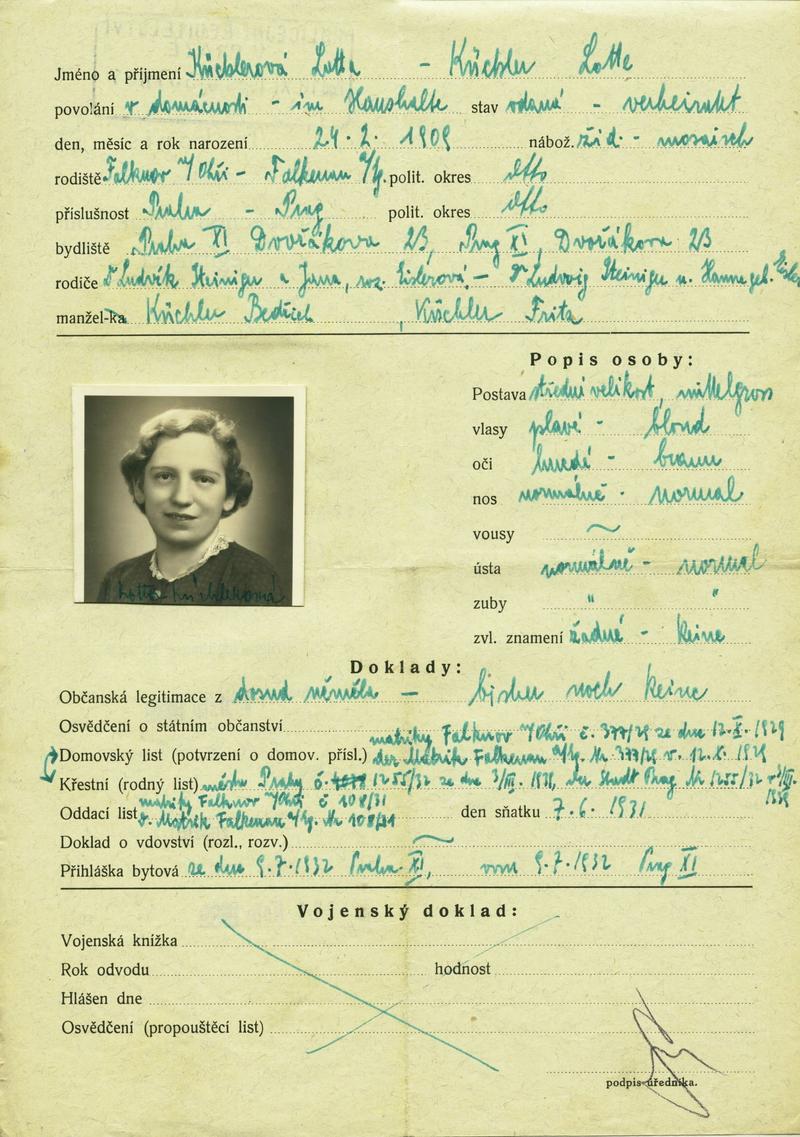 Jméno a příjmení Küchlerová Lotta - Küchler Lotte
povolání v domácnosti - im Haushalte stav vdaná - verheiratet
den, měsíc a rok narození 24. 2. 1909 nábož. žid. - mosaisch
rodiště Falknov n/Ohří - Falkenau a/Eg. polit. okres dtto
příslušnost Praha - Prag polit. okres dtto
bydliště Praha XI Dvořákova 23, Prag XI, Dvořákova 23
rodiče Dr Ludvík Steiniger a Jana, roz. Eislerová, - Dr Ludwig Steiniger u. Hanna geb. Eisler
manžel-ka Küchler Bedřich, Küchler Fritz
Popis osoby:
Postava střední velikost, mittelgross
vlasy plavé - blond
oči hnedé - braun
nos normálně - normal
vousy ~
ústa normálně - normal
zuby " "
zvl. znamení žádné - keine
Lotte Küchlerová
Doklady:
Občanská legitimace z dosud neměla - bisher noch keine
Osvědčení o státním občanství
matriky Falknov n/Ohří č. 377/29 ze dne 12. X. 1929
Domovský list (potvrzení o domov. přísl.) der Matrik Falkenau a/Eg. Nr 377/29 v. 12. X. 1929
Křestní (rodný list) města Prahy č. 1255/32 ze dne 3/III. 1932, der Stadt Prag Nr 1255/32 v. 3/III.
matriky Falknov n/Ohří č 108/31
Oddací list d. Matrik Falkenau a/Eg. Nr 108/31 den sňatku 7. 6. 1931
Doklad o vdovství (rozl., rozv.) ~
Přihláška bytová ze dne 9. 7. 1932 Praha XI, vom 9. 7. 1932 Prag XI
Vojenský doklad:
Vojenská knížka
Rok odvodu hodnost
Hlášen dne
Osvědčení (propouštěcí list)
podpis úředníka.